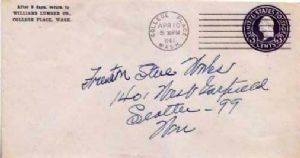 After 5 days, return to
WILLIAMS LUMBER CO.,
COLLEGE PLACE, WASH.
COLLEGE PLACE
APR 10
PM
1941
WASH.
UNITED STATES
CENTS
Works
1401 West Garfield
Seattle - 99